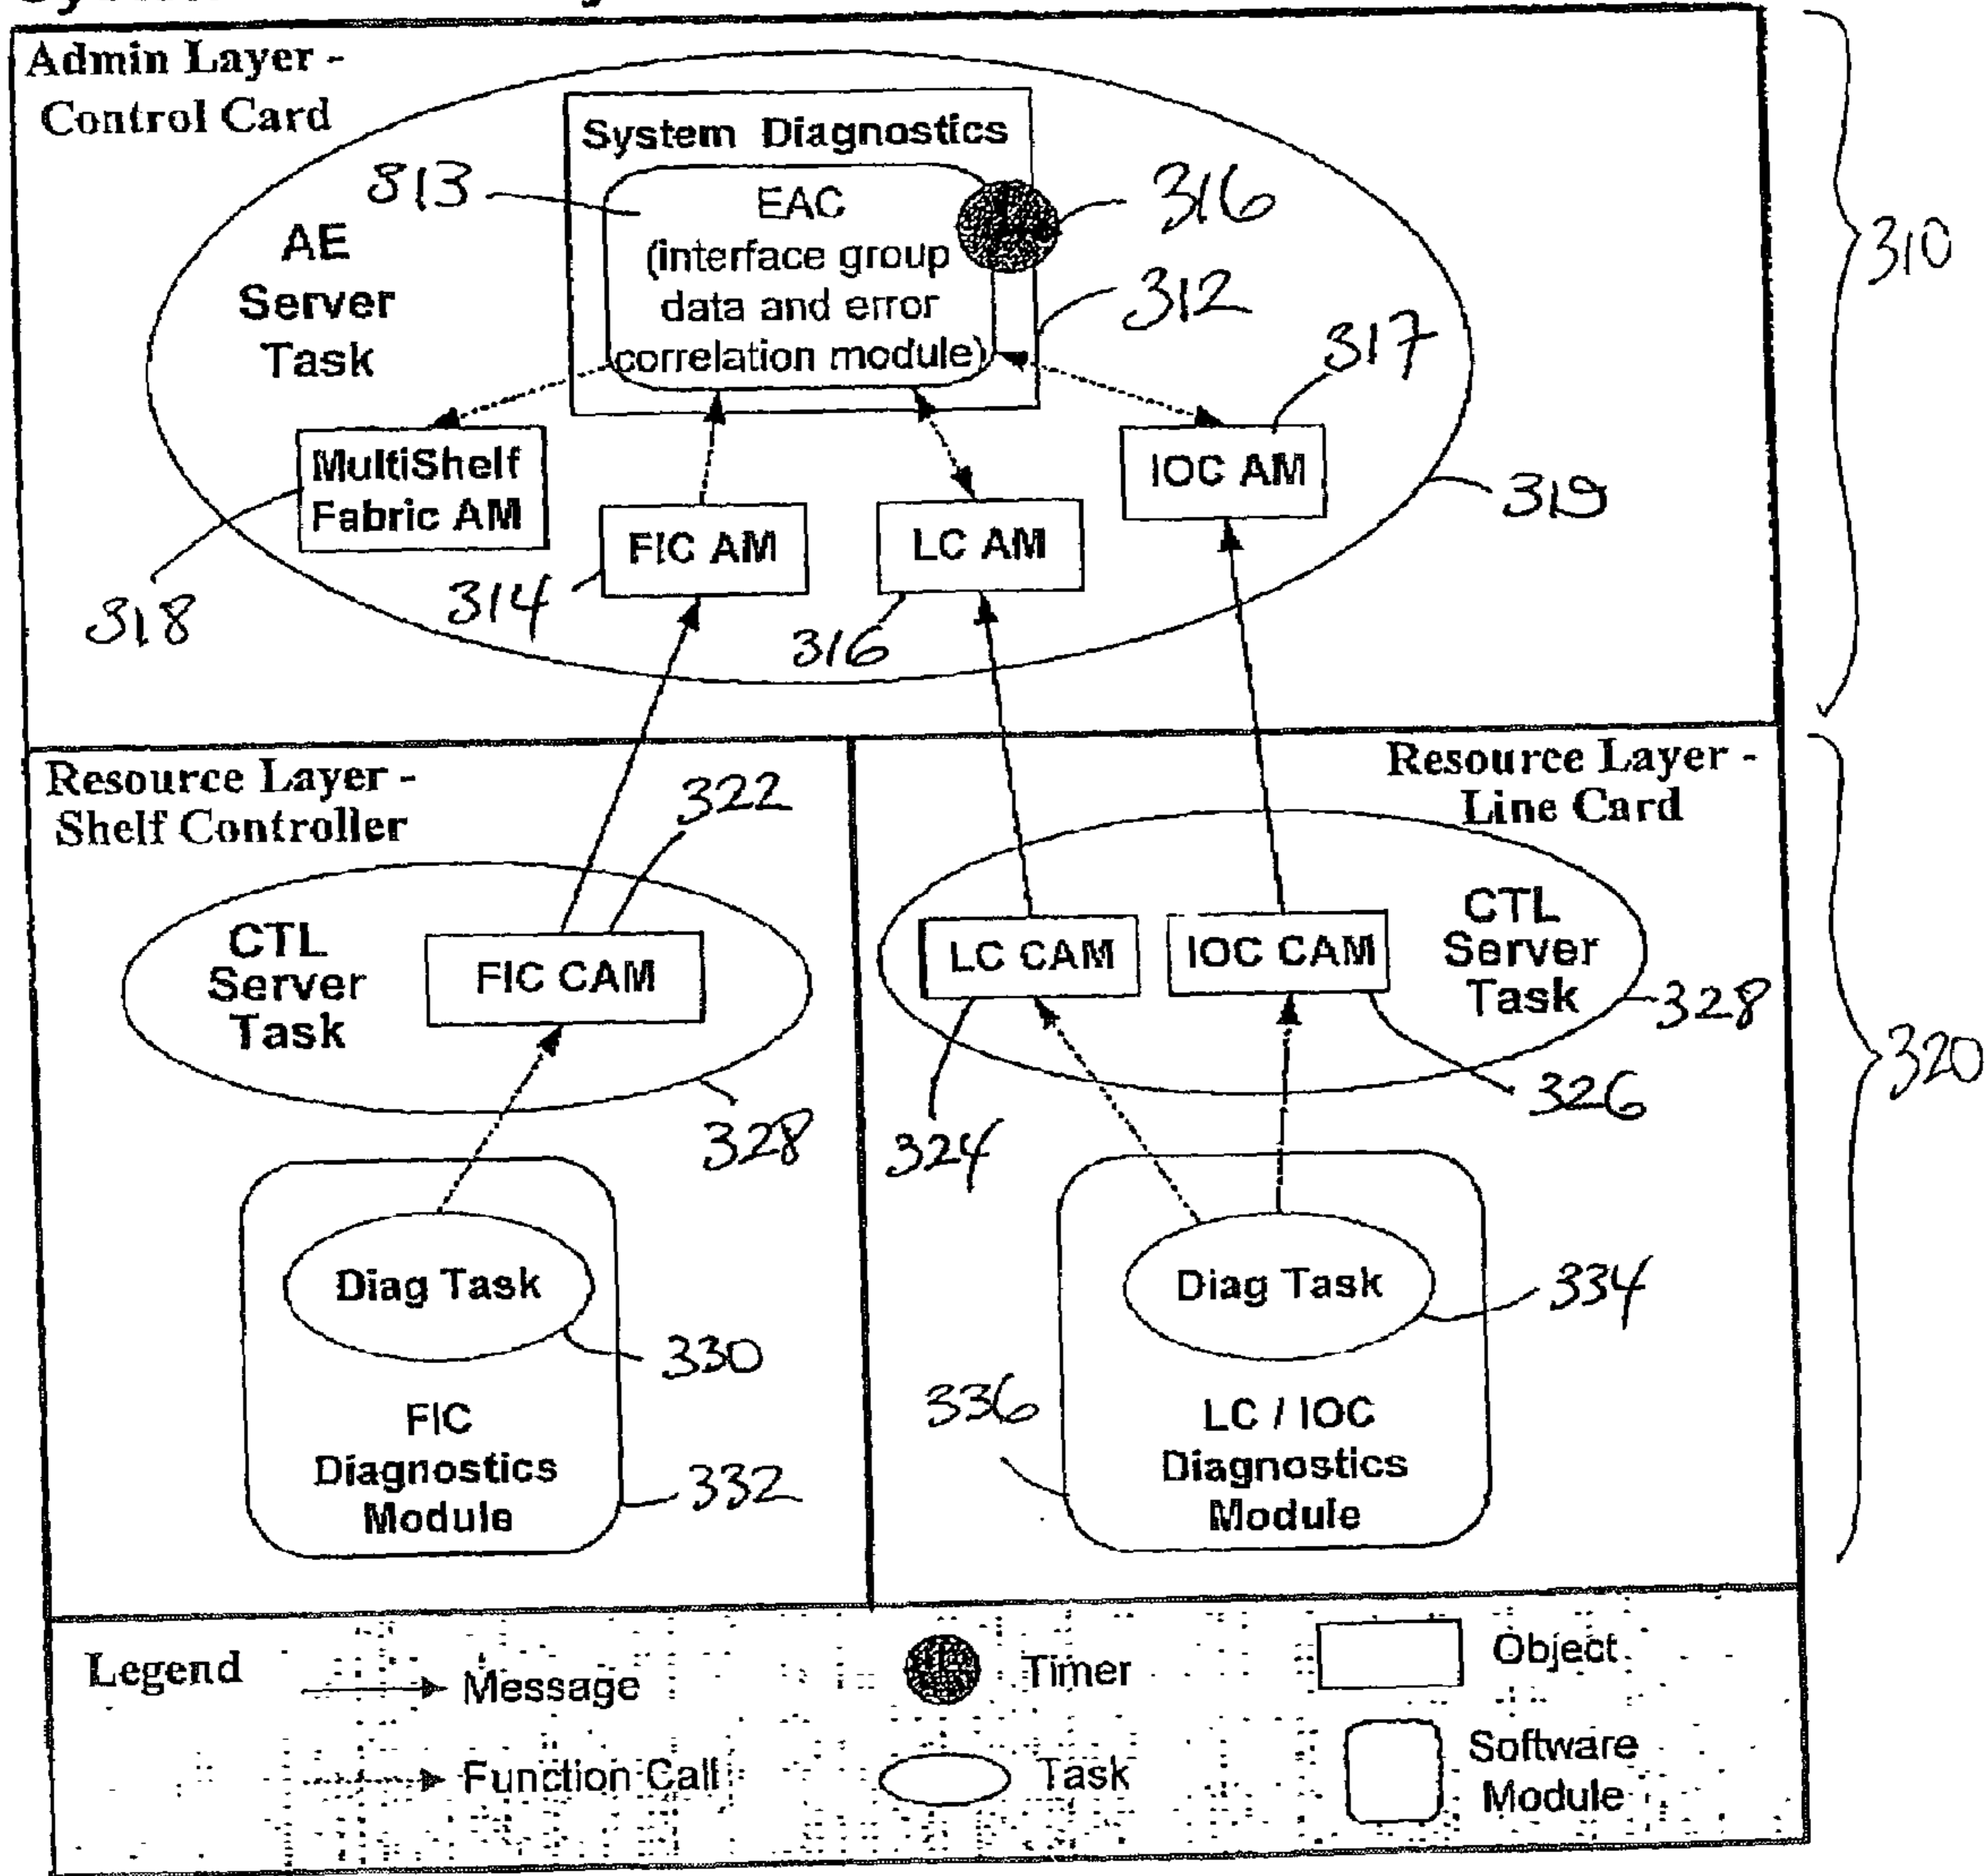 Admin Layer -
Control Card
System Diagnostics
813
EAC
(interface group
data and error
correlation module)
316
312
317
310
AE
Server
Task
MultiShelf
Fabric AM
FIC AM
LC AM
IOC AM
319
318
314
316
Resource Layer -
Shelf Controller
322
CTL
Server
Task
FIC CAM
328
Diag Task
330
FIC
Diagnostics
Module
332
Resource Layer -
Line Card
LC CAM
IOC CAM
CTL
Server
Task
328
326
324
320
Diag Task
334
336
LC / IOC
Diagnostics
Module
Legend
Message
Function Call
Timer
Task
Object
Software
Module